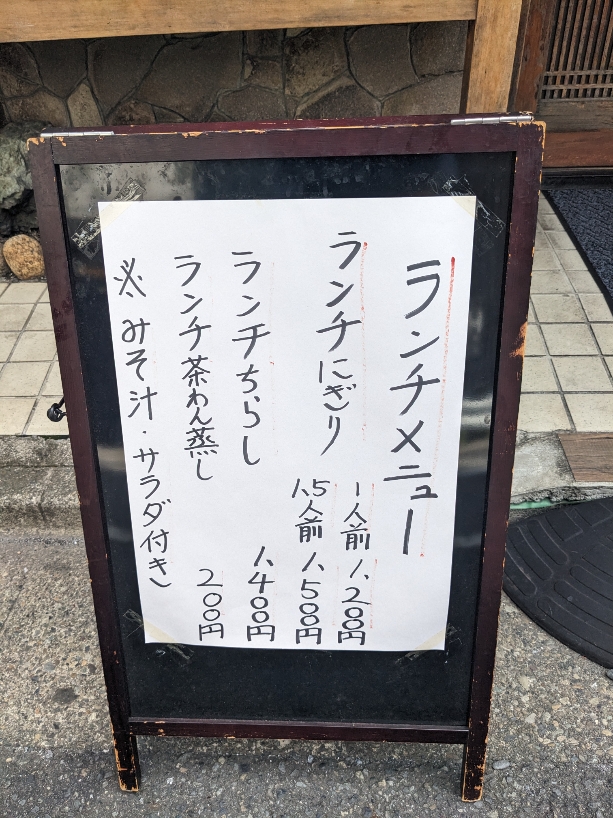 ランチメニュー
ランチにぎり 1人前 1,200円
1,5人前 1,500円
ランチちらし 1,400円
ランチ茶わん蒸し 200円
※みそ汁・サラダ付き